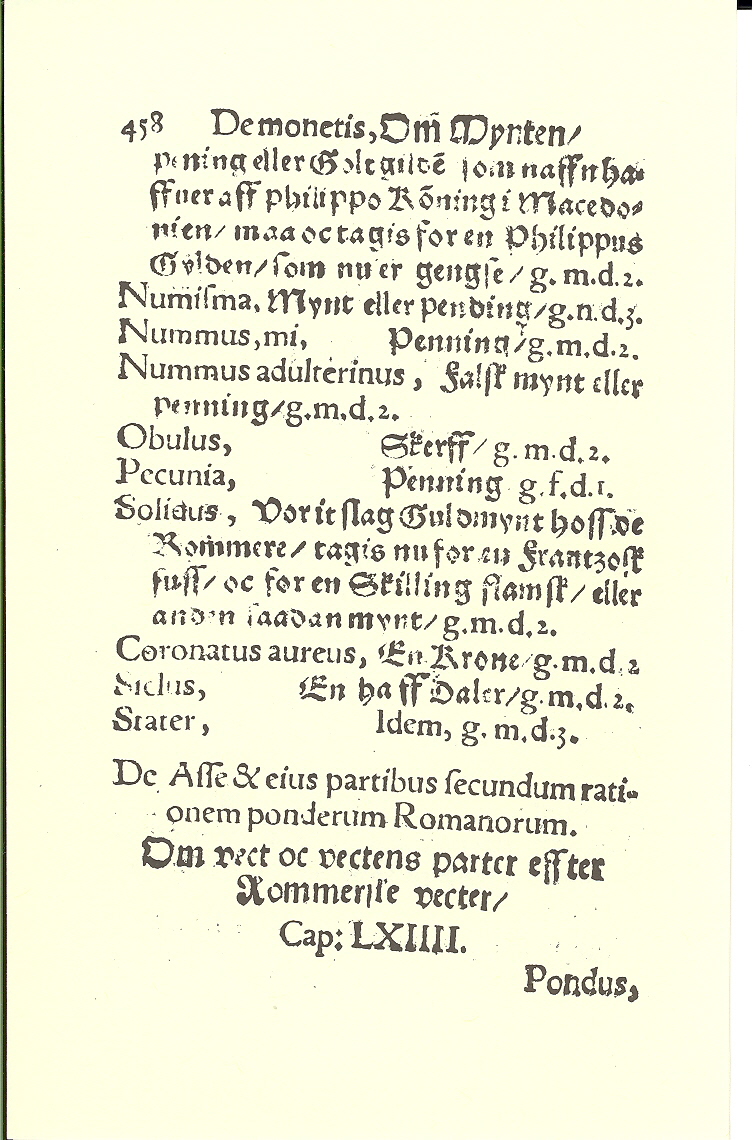 458 De monetis, Om̃ Mynten/
pening eller Golt gildē som naffn ha-
ffuer aff Philippo Kõning i Macedo-
nien/ maa oc tagis for en Philippus
Gylden/ som nu er gengse/ g. m. d. 2.
Numisma, Mynt eller pending/ g. n. d. 3.
Nummus, mi, Penning/ g. m. d. 2.
Nummus adulterinus, Falsk mynt eller
penning/ g. m. d. 2.
Obulus, Skerff/ g. m. d. 2.
Pecunia, Penning g. f. d. 1.
Solidus, Vor it slag Guldmynt hoss de
Rommere/ tagis nu for en Frantzosk
suss/ oc for en Skilling flamsk/ eller
anden saadan mynt/ g. m. d. 2.
Coronatus aureus, En Krone/ g. m. d. 2
Siclus, En halff Daler/ g. m. d. 2.
Stater, Idem, g. m. d. 3.
De Asse & eius partibus secundum rati-
onem ponderum Romanorum.
Om vect oc vectens parter effter
Rommerske vecter/
Cap: LXIIII.
Pondus,